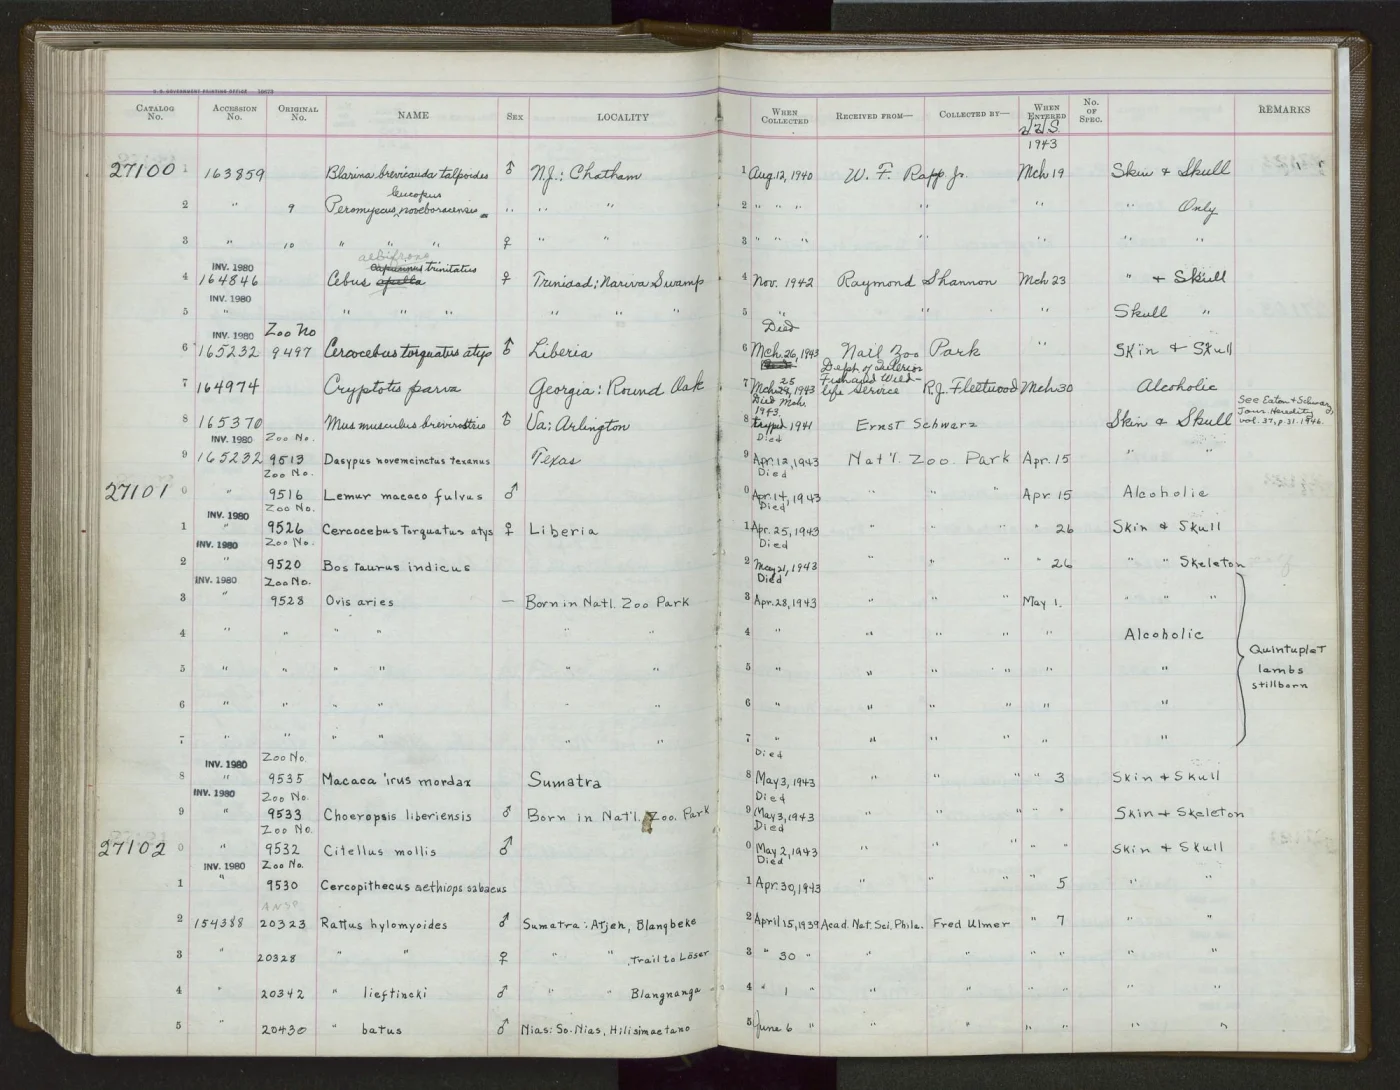 U. S. GOVERNMENT PRINTING OFFICE
CATALOG No. ACCESSION No. ORIGINAL No. NAME SEX LOCALITY WHEN COLLECTED RECEIVED FROM— COLLECTED BY— WHEN ENTERED No. OF SPEC. REMARKS
1943
27100 1 163859 Blarina brevicauda talpoides ♂ N.J.: Chatham 1 Aug. 12, 1940 W. F. Rapp Jr. Mch 19 Skin & Skull
leucopus
2 " 9 Peromyscus noveboracensis " " " 2 " " " " " " Only
3 " 10 " " " ♀ " " 3 " " " " " " "
albifrons
INV. 1980 capucinus trinitatis
4 164846 Cebus apella ♀ Trinidad: Nariva Swamp 4 Nov. 1942 Raymond Shannon Mch 23 " & Skull
INV. 1980
5 " " " " " " " 5 " " " Skull "
INV. 1980 Zoo No Died
6 165232 9497 Cercocebus torquatus atys ♂ Liberia 6 Mch. 26, 1943 Nat'l Zoo Park " Skin & Skull
Dept. of Interior
25 Fish and Wild-
7 164974 Cryptotis parva Georgia: Round Oak 7 Mch 29, 1943 life Service R.J. Fleetwood Mch 30 Alcoholic
Died Mch. See Eaton & Schwarz,
1943 Jour. Heredity
8 165370 Mus musculus brevirostris ♂ Va: Arlington 8 trapped 1941 Ernst Schwarz Skin & Skull vol. 37, p. 31. 1946.
INV. 1980 Zoo No. Died
9 165232 9513 Dasypus novemcinctus texanus Texas 9 Apr. 12, 1943 Nat'l. Zoo. Park Apr. 15 " "
Zoo No. Died
27101 0 " 9516 Lemur macaco fulvus ♂ 0 Apr. 14, 1943 " " " Apr 15 Alcoholic
INV. 1980 Zoo No. Died
1 " 9526 Cercocebus Torquatus atys ♀ Liberia 1 Apr. 25, 1943 " " " " 26 Skin & Skull
INV. 1980 Zoo No. Died
2 " 9520 Bos taurus indicus 2 May 21, 1943 " " " " 26 " " Skeleton
INV. 1980 Zoo No. Died
3 " 9528 Ovis aries — Born in Natl. Zoo Park 3 Apr. 28, 1943 " " " May 1. " " "
4 " " " " " " 4 " " " " " Alcoholic
Quintuplet
5 " " " " " " 5 " " " " " "
lambs
stillborn
6 " " " " " " 6 " " " " " "
7 " " " " " " 7 " " " " " "
INV. 1980 Zoo No. Died
8 " 9535 Macaca irus mordax Sumatra 8 May 3, 1943 " " " " 3 Skin & Skull
INV. 1980 Zoo No. Died
9 " 9533 Choeropsis liberiensis ♂ Born in Nat'l. Zoo. Park 9 May 3, 1943 " " " " " Skin & Skeleton
Zoo No. Died
27102 0 " 9532 Citellus mollis ♂ 0 May 2, 1943 " " " " " Skin & Skull
INV. 1980 Zoo No. Died
1 " 9530 Cercopithecus aethiops sabaeus 1 Apr. 30, 1943 " " " " 5 " "
ANSP
2 154388 20323 Rattus hylomyoides ♂ Sumatra: Atjeh, Blangbeke 2 April 15, 1939 Acad. Nat. Sci. Phila. Fred Ulmer " 7 " "
3 " 20328 " " ♀ " " Trail to Löser 3 " 30 " " " " " " "
4 " 20342 " lieftincki ♂ " " Blangnanga 4 " 1 " " " " " " "
5 " 20430 " batus ♂ Nias: So. Nias, Hilisimaetano 5 June 6 " " " " " " "